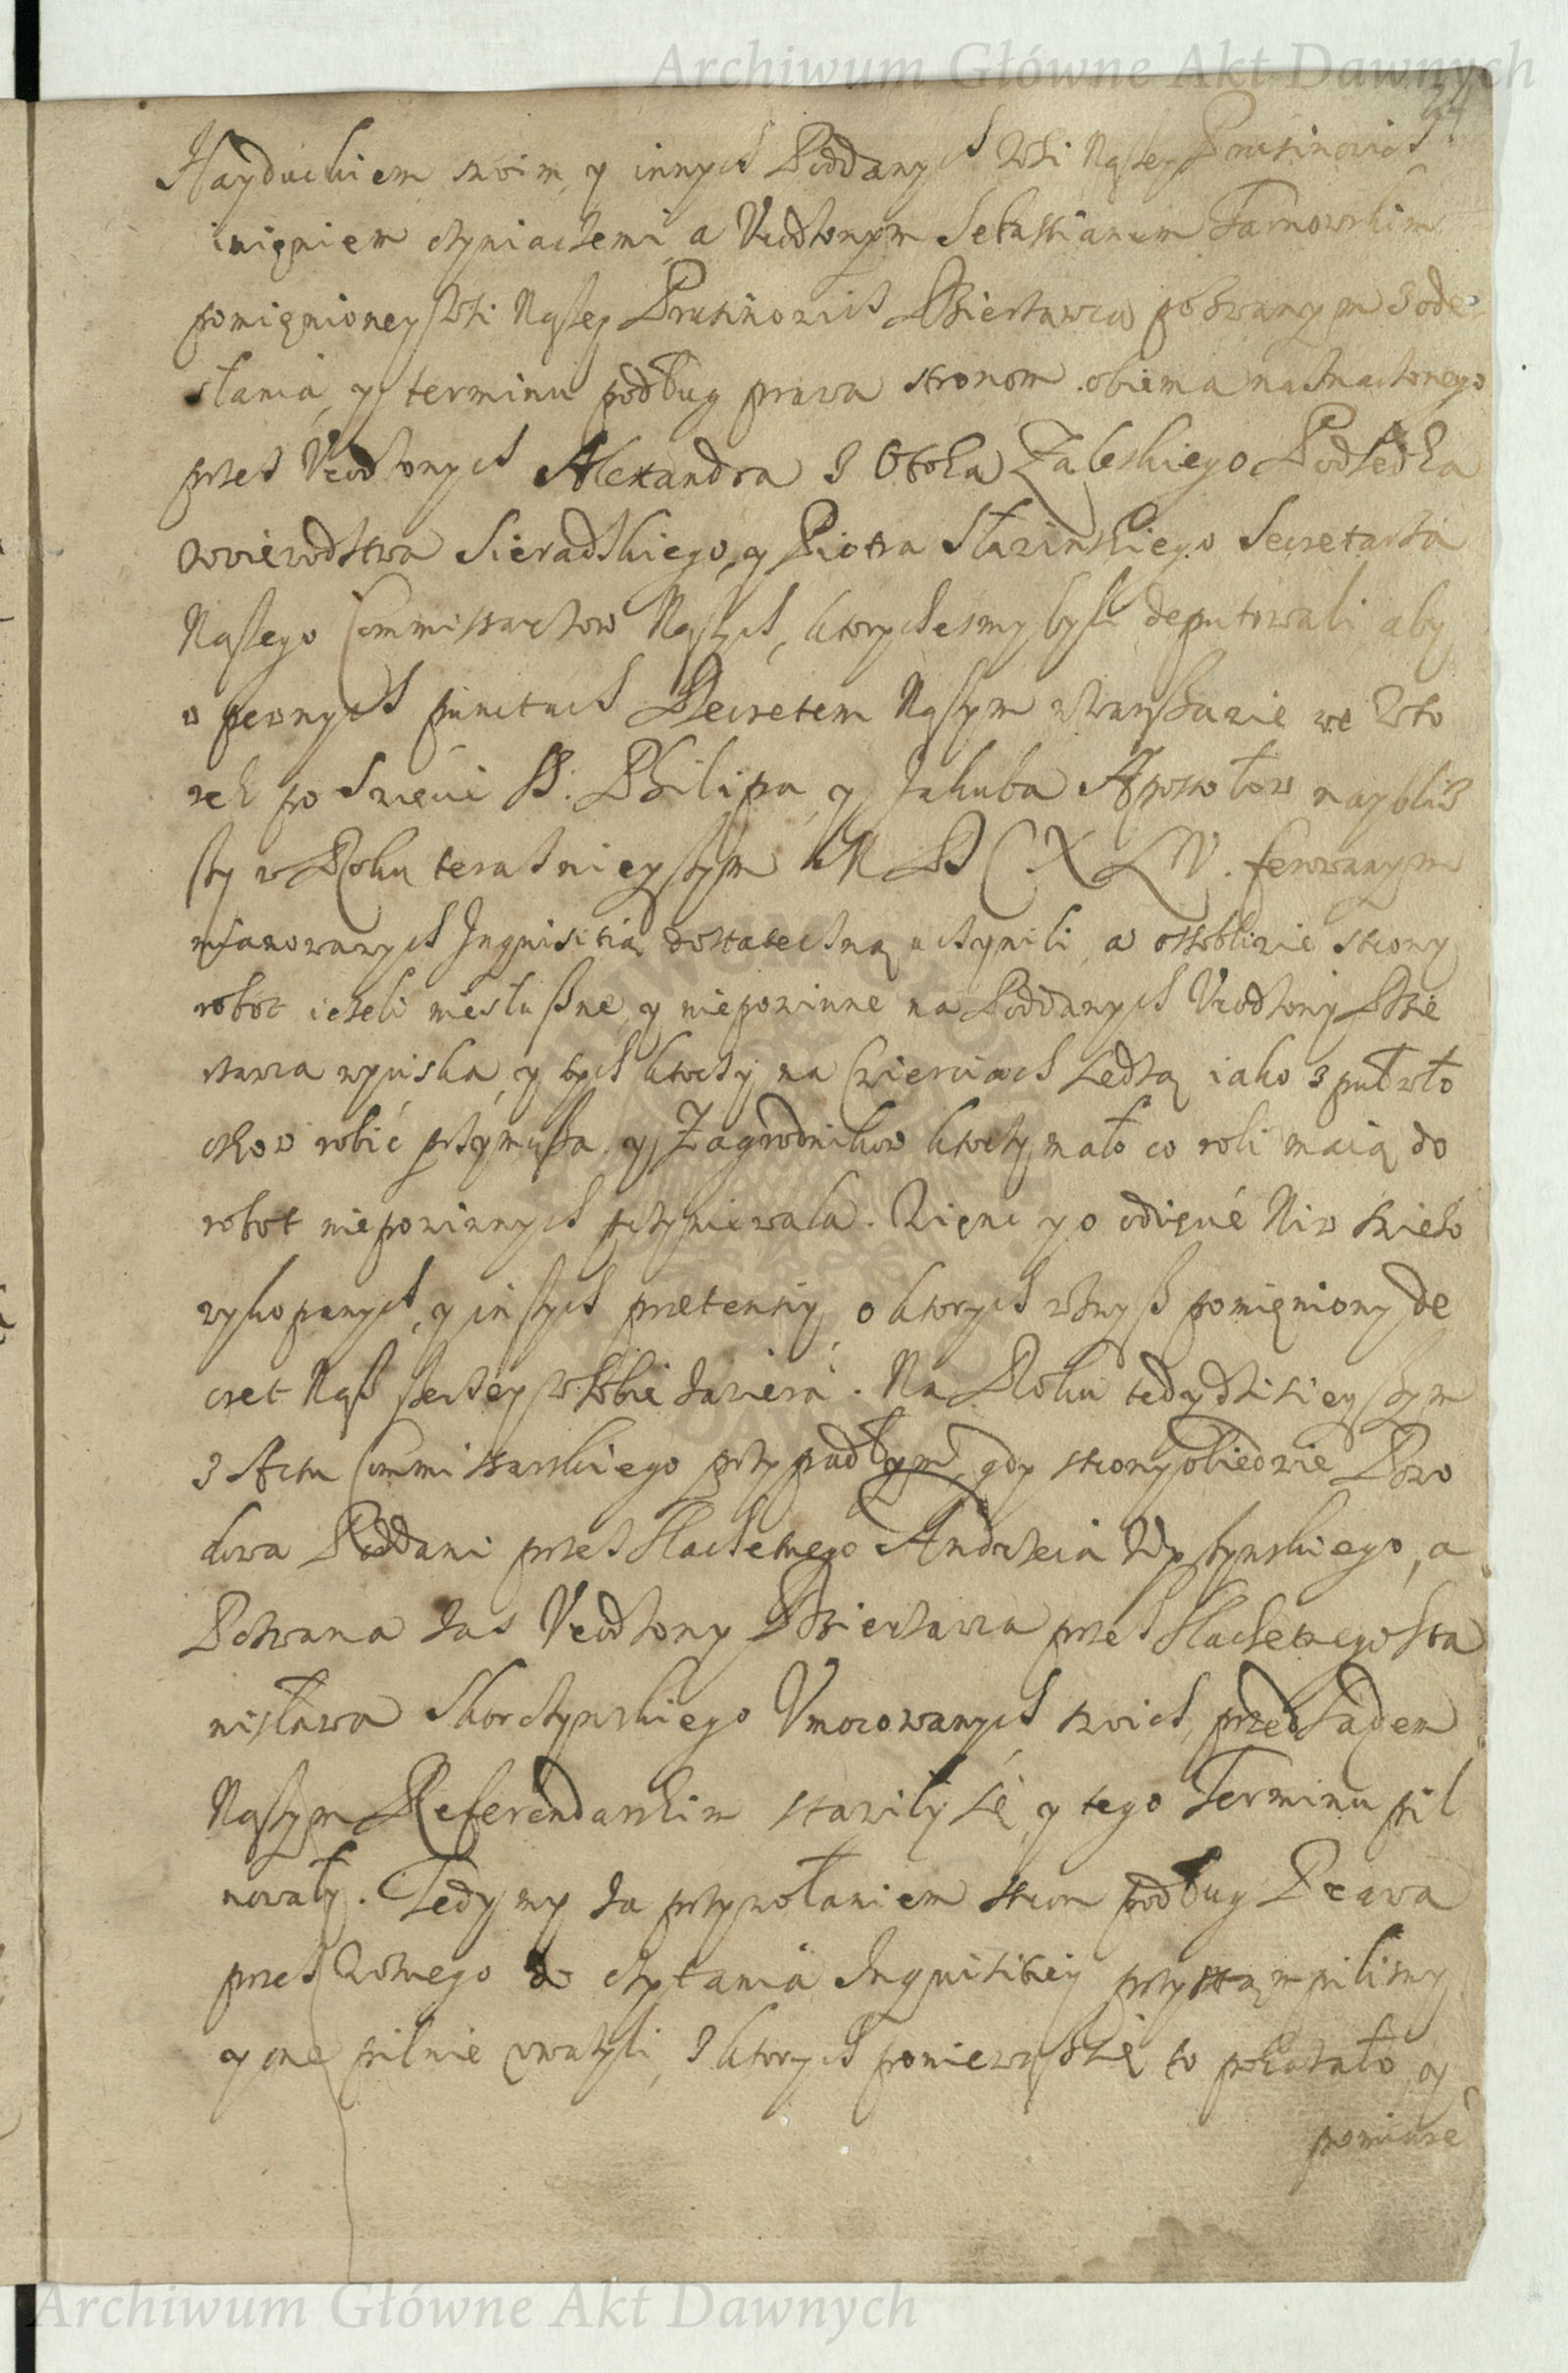 Archiwum Główne Akt Dawnych
94
Hayduckiem swoim, y innych Poddanych Wsi Naszey Prusinowic
imieniem czyniącemi, a Urodzonym Sebastianem Tarnowskim
pomięnioney Wsi Naszey Prusinowic Dzierżawcą pozwanym z ode
słania, y terminu podług prawa stronom obiema naznaczonego
przez Urodzonych Alexandra z Otoka Zaleskiego Podsędka
Woiewodztwa Sieradzkiego, y Piotra Stazinskiego Secretarza
Naszego Commissarzow Naszych, ktorycheśmy byli deputowali aby
w pewnych punctach Decretem Naszym w Warszawie we Wto
rek po Święcie SS. Philipa, y Jakuba Apostołow naybliż
szy w Roku teraznieyszym MDCXLIV. ferowanym
mianowanych Inquisitią dostateczną uczynili, a osobliwie strony
robot ieżeli niesłuszne, y niepowinne na Poddanych Urodzony Dzie
rzawca wpuska, y tych ktorzy na Czwierciach siedzą iako z puł wło
ckow robić przymusza, y Zagrodnikow ktorzy mało co roli maią do
robot niepowinnych przyniewala. Więnc y o odięcie Niw swieżo
wykopanych, y inszych pretensiy, o ktorych wzwysz pomięniony De
cret Nasz szerzey w sobie zawiera. Na Roku tedy dzisieyszym
z Actu Commissarskiego przypadłym, gdy strony obiedwie Powo
dowa Poddani przez Slachetnego Andrzeia Wyszynskiego, a
Pozwana zas Urodzony Dzierzawca przez Slachetnego Sta
nisława Skorczynskiego Umocowanych swoich, przed Sądem
Naszym Referendarskim stawiły się, y tego Terminu pil
nowały. Tedy my za przywołaniem stron podług Prawa
przez Woznego do czytania Inquisitiey przystąmpilismy
y one pilnie uważyli, z ktorych ponieważ się to pokazało, y
ponieważ
Archiwum Główne Akt Dawnych